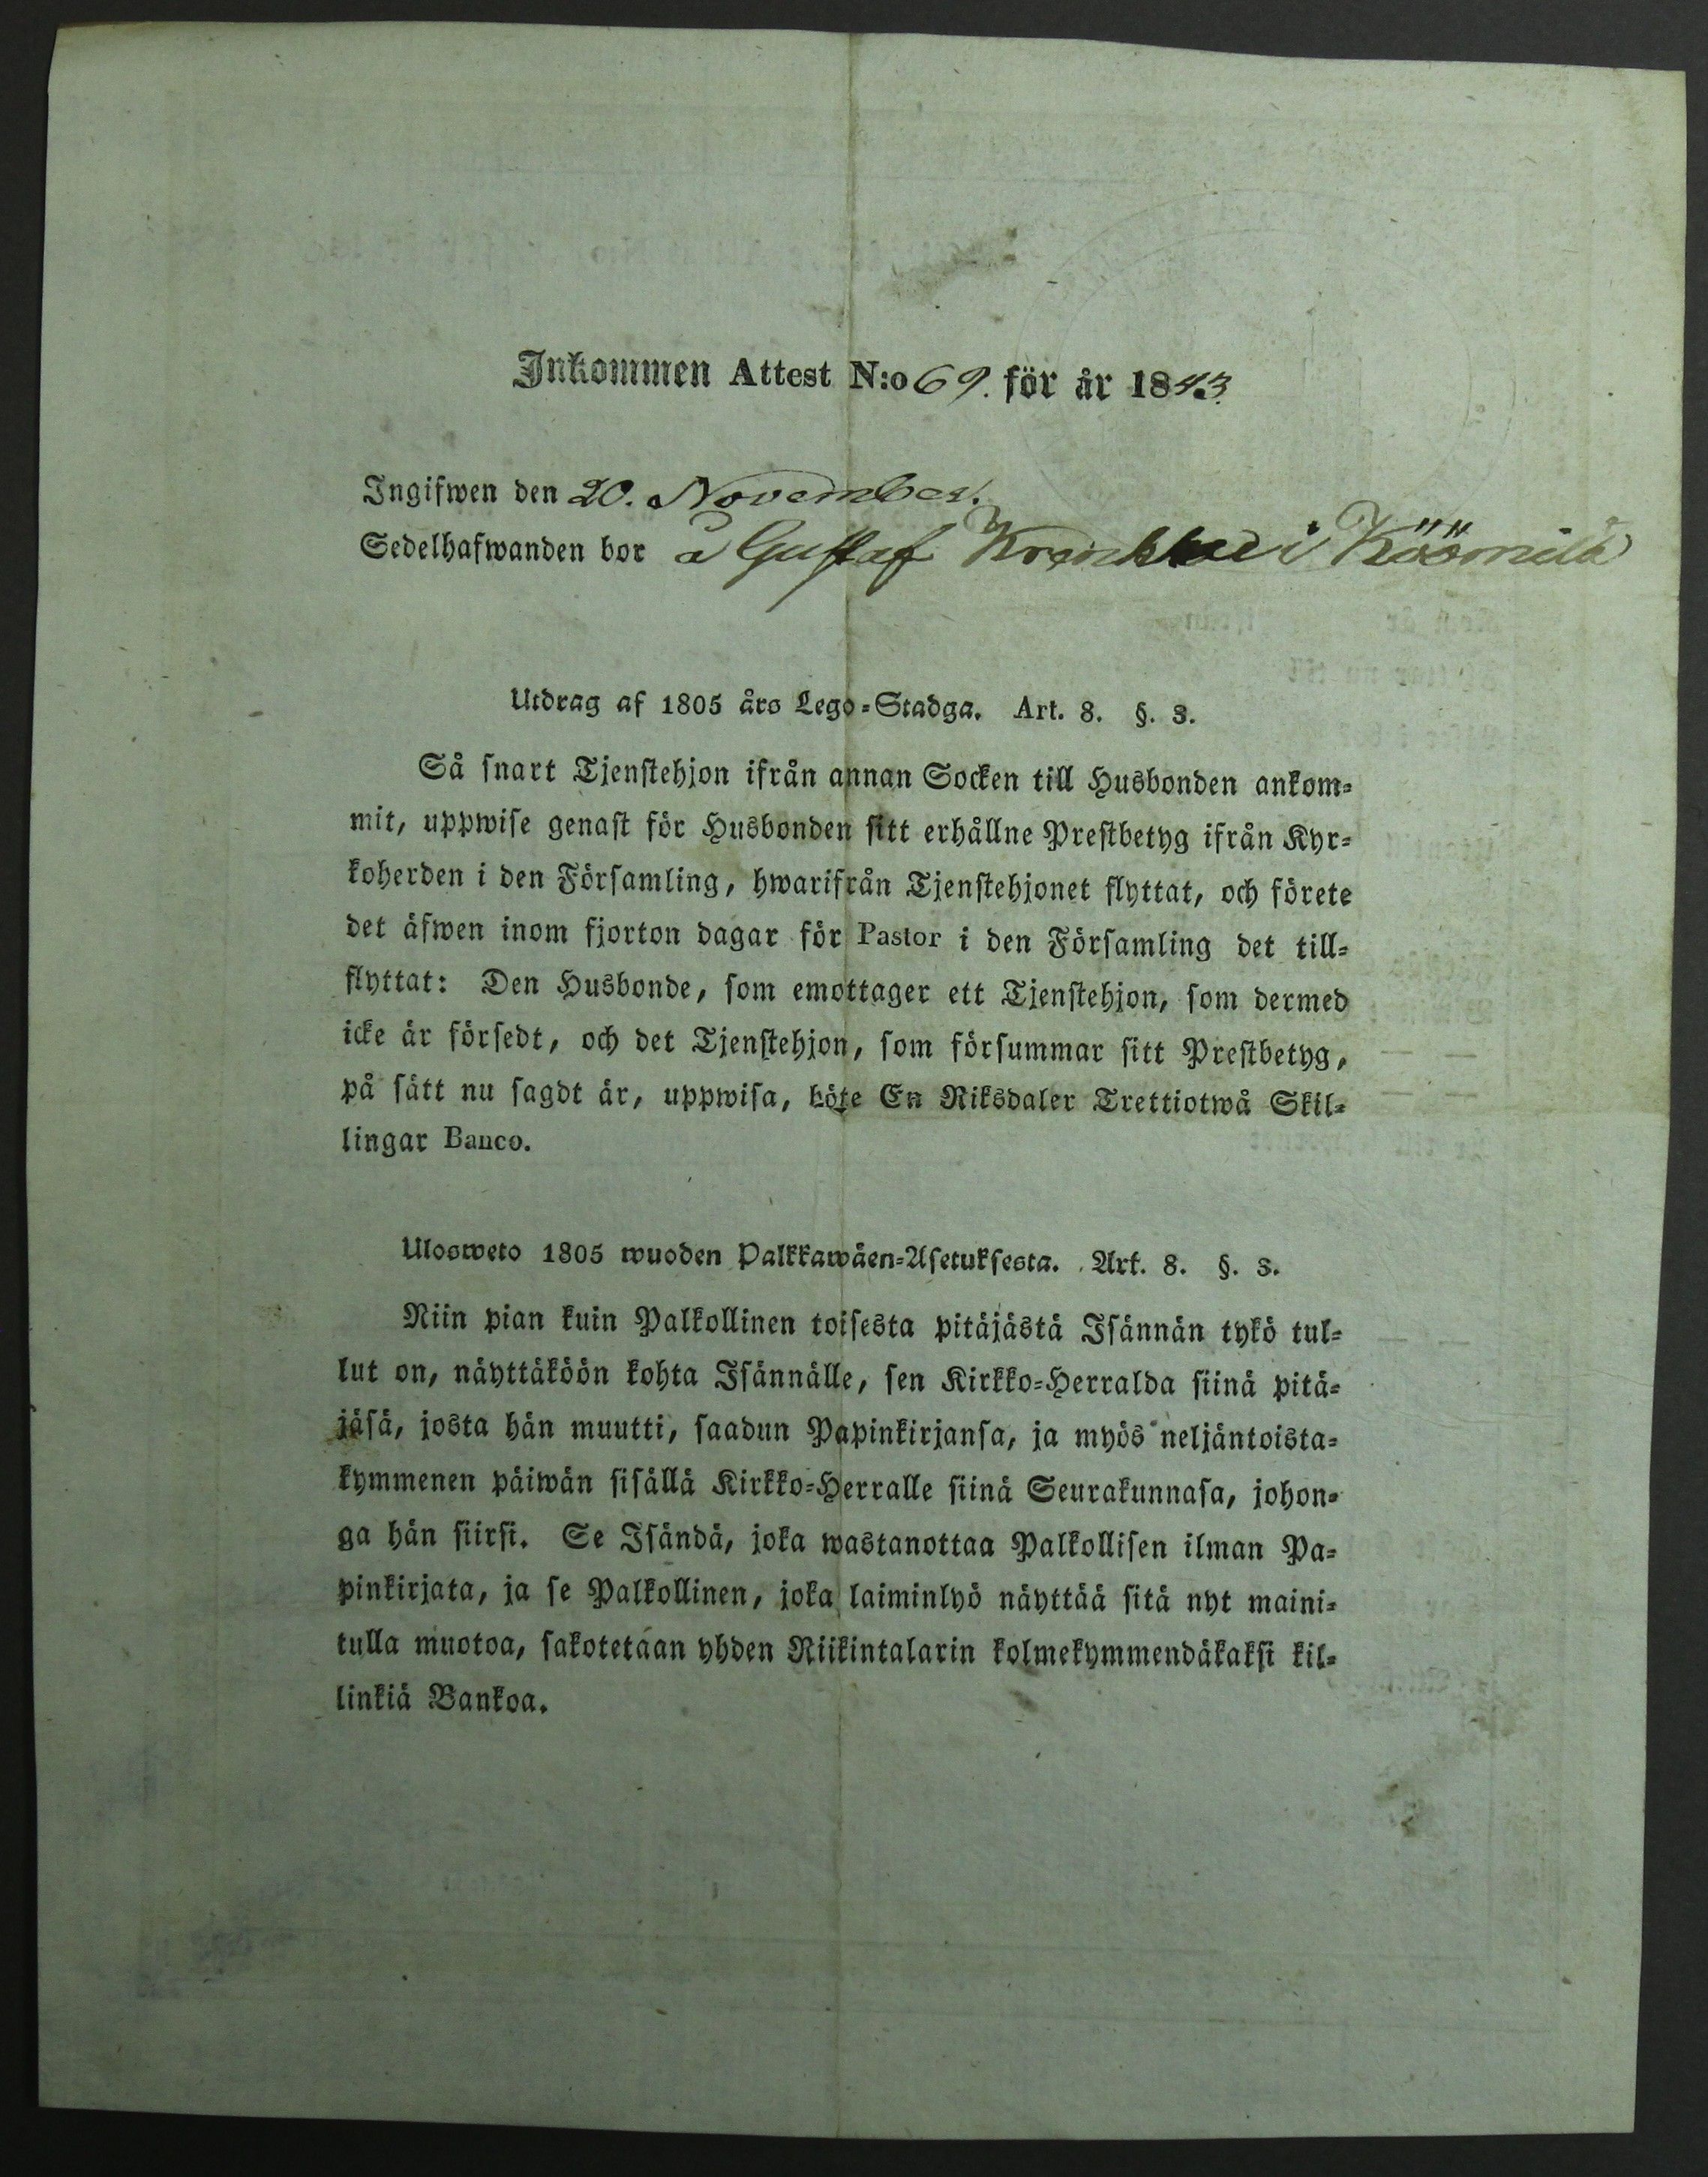 Inkommen Attest N:o 69. för år 1843.
Ingifwen den 20. November.
Sedelhafwanden bor å Gustaf i Köömilä
Utdrag af 1805 års Lego-Stadga. Art. 8. §. 3.
Så snart Tjenstehjon ifrån annan Socken till Husbonden ankom-
mit, uppwise genast för Husbonden sitt erhållne Prestbetyg ifrån Kyr-
koherden i den Församling, hwarifrån Tjenstehjonet flyttat, och förete
det äfwen inom fjorton dagar för Pastor i den Församling det till-
flyttat: Den Husbonde, som emottager ett Tjenstehjon, som dermed
icke är försedt, och det Tjenstehjon, som försummar sitt Prestbetyg,
på sätt nu sagdt är, uppwisa, böte En Riksdaler Trettiotwå Skil-
lingar Banco.
Ulosweto 1805 wuoden Palkkawäen-Asetuksesta. Art. 8. §. 3.
Niin pian kuin Palkollinen toisesta pitäjästä Isännän tykö tul-
lut on, näyttäköön kohta Isännälle, sen Kirkko-Herralda siinä pitä-
jäsä, josta hän muutti, saadun Papinkirjansa, ja myös neljäntoista-
kymmenen päiwän sisällä Kirkko-Herralle siinä Seurakunnasa, johon-
ga hän siirsi. Se Isändä, joka wastanottaa Palkollisen ilman Pa-
pinkirjata, ja se Palkollinen, joka laiminlyö näyttää sitä nyt maini-
tulla muotoa, sakotetaan yhden Riikintalarin kolmekymmendäkaksi kil-
linkiä Bankoa.